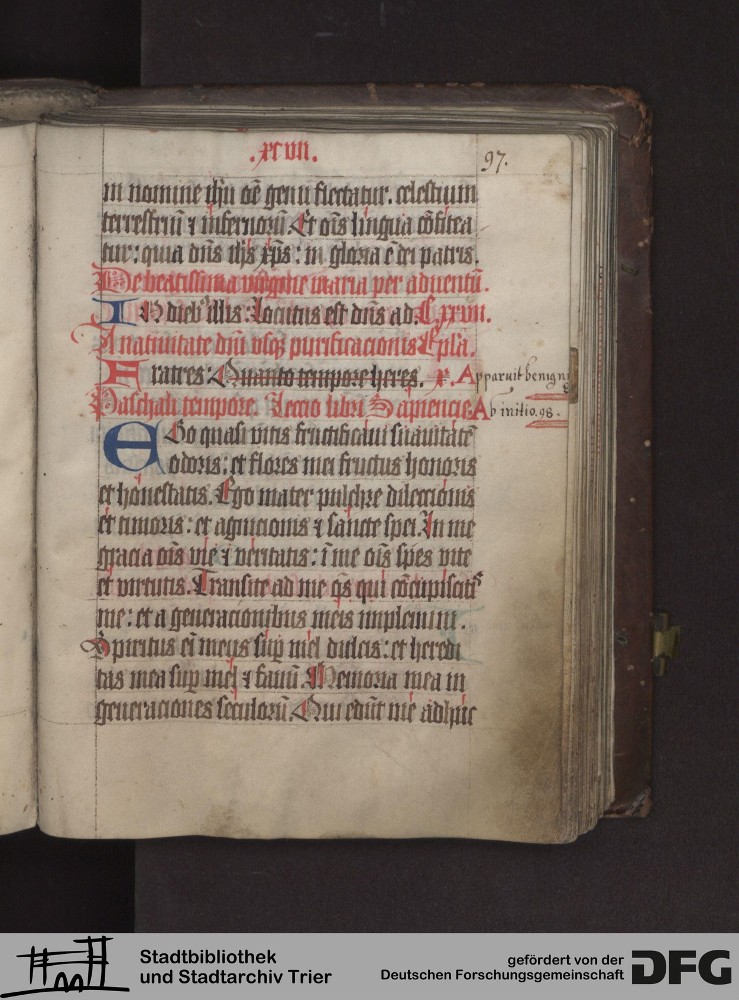 .xcvii.
97.
in nomine ihū oē genu flectatur. celestium
terrestriū ⁊ infernorū Et oīs lingua cōfitea
tur: quia dn̄s ih̄s xp̄s: in gloria ē dei patris.
De beatissima v̓gine maria per aduentū.
IN dieb⁹ illis: Locutus est dn̄s ad. Cxxvii.
A natiuitate dn̄i vsq̄ purificacionis Ep̄la.
Fratres: Quanto tempore heres. Apparuit benigni
Paschali tempore. Lectio libri Sapiencie Ab initio. 98.
EGo quasi vitis fructificaui suauitatē
odoris: et flores mei fructus honoris
et honestatis. Ego mater pulchre dileccionis
et timoris: et agnicionis ⁊ sancte spei. In me
gracia oīs vie ⁊ veritatis: ī me oīs spes vite
et virtutis. Transite ad me oēs qui cōcupiscitis
me: et a generacionibus meis implemini.
Spiritus eī meus sup̄ mel dulcis: et heredi
tas mea sup̄ mel ⁊ fauū. Memoria mea in
generaciones seculorū. Qui edūt me adhuc
Stadtbibliothek
und Stadtarchiv Trier
gefördert von der
Deutschen Forschungsgemeinschaft
DFG